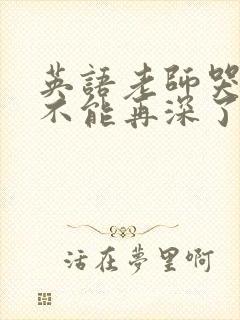 英語老師哭
不能再深了
活在夢里啊